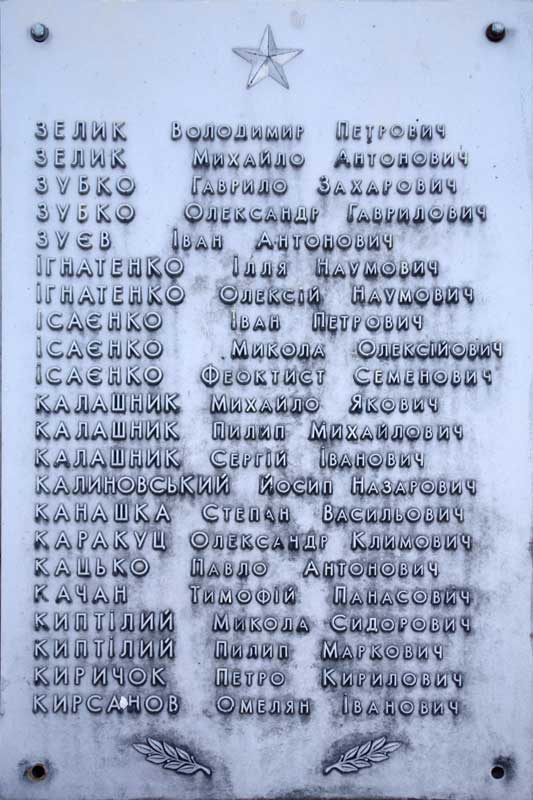 ЗЕЛИК ВОЛОДИМИР ПЕТРОВИЧ
ЗЕЛИК МИХАЙЛО АНТОНОВИЧ
ЗУБКО ГАВРИЛО ЗАХАРОВИЧ
ЗУБКО ОЛЕКСАНДР ГАВРИЛОВИЧ
ЗУЄВ ІВАН АНТОНОВИЧ
ІГНАТЕНКО ІЛЛЯ НАУМОВИЧ
ІГНАТЕНКО ОЛЕКСІЙ НАУМОВИЧ
ІСАЄНКО ІВАН ПЕТРОВИЧ
ІСАЄНКО МИКОЛА ОЛЕКСІЙОВИЧ
ІСАЄНКО ФЕОКТИСТ СЕМЕНОВИЧ
КАЛАШНИК МИХАЙЛО ЯКОВИЧ
КАЛАШНИК ПИЛИП МИХАЙЛОВИЧ
КАЛАШНИК СЕРГІЙ ІВАНОВИЧ
КАЛИНОВСЬКИЙ ЙОСИП НАЗАРОВИЧ
КАНАШКА СТЕПАН ВАСИЛЬОВИЧ
КАРАКУЦ ОЛЕКСАНДР КЛИМОВИЧ
КАЦЬКО ПАВЛО АНТОНОВИЧ
КАЧАН ТИМОФІЙ ПАНАСОВИЧ
КИПТІЛИЙ МИКОЛА СИДОРОВИЧ
КИПТІЛИЙ ПИЛИП МАРКОВИЧ
КИРИЧОК ПЕТРО КИРИЛОВИЧ
КИРСАНОВ ОМЕЛЯН ІВАНОВИЧ